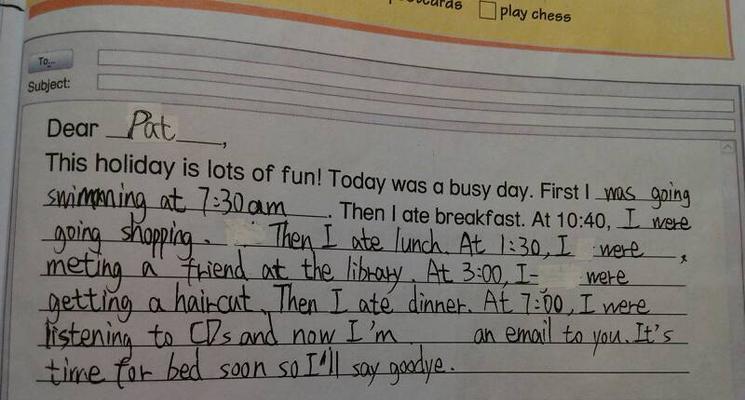 play chess
To...
Subject:
Dear Pat,
This holiday is lots of fun! Today was a busy day. First I was going
swimming at 7:30am. Then I ate breakfast. At 10:40, I were
going shopping. Then I ate lunch. At 1:30, I were,
meting a friend at the library. At 3:00, I- were
getting a haircut. Then I ate dinner. At 7:00, I were
listening to CDs and now I'm an email to you. It's
time for bed soon so I'll say goodye.